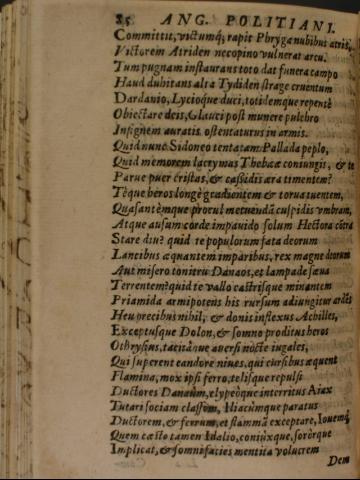 85 ANG. POLITIANI.
Committit, victumq; rapit Phryga nubibus atris,
Victorem Atriden necopino vulnerat arcu.
Tum pugnam instaurans toto dat funera campo
Haud dubitans alta Tydiden strage cruentum
Dardanio, Lycioque duci, totidemque repentè
Obiectare deis, Glauci post munere pulchro
Insignem auratis ostentaturus in armis.
Quid nunc Sidoneo tentatam Pallada peplo,
Quid memorem lacrymas Thebææ coniungis, & te
Parue puer cristas, & cassidis æra timentem?
Téque heros longè gradientem & torua tuentem,
Quassantémque procul metuendã cuspidis vmbram,
Atque ausum corde impauido solum Hectora cõtra
Stare diu? quid te populorum fata deorum
Lancibus æquantem imparibus, rex magne deorum
Aut misero tonitru Danaos, et lampade sæua
Terrentem? quid te vallo castrisque minantem
Priamida armipotens his rursum adiungitur ardẽs
Heu precibus nihil, & donis inflexus Achilles,
Exceptusque Dolon, & somno proditus heros
Othrysius, tacitáque auersi nocte iugales,
Qui superent candore niues, qui cursibus æquent
Flamina, mox ipsi ferro, telisque repulsi
Ductores Danaûm, clypeóque interritus Aiax
Tutari sociam classem, Iliacúmque paratus
Ductorem, & ferrum, et flammã exceptare, Iouemq;
Quem cæsto tamen Idalio, coniúxque, sorórque
Implicat, & somnifacies mentita volucrem
Dem